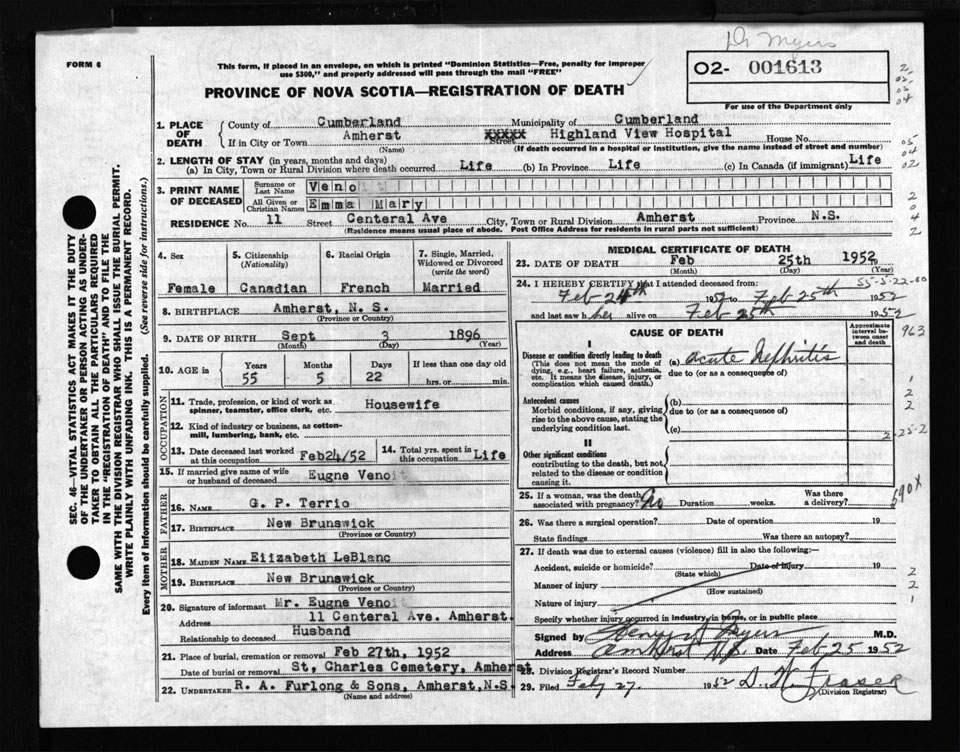 Dr Myers
FORM 6
This form, if placed in an envelope, on which is printed "Dominion Statistics—Free, penalty for improper
use $300," and properly addressed will pass through the mail "FREE"
O2- 001613
For use of the Department only
PROVINCE OF NOVA SCOTIA—REGISTRATION OF DEATH
1. PLACE OF DEATH
County of Cumberland Municipality of Cumberland
If in City or Town Amherst Street XXXXX Highland View Hospital House No.
(Name) (If death occurred in a hospital or institution, give the name instead of street and number)
2. LENGTH OF STAY (in years, months and days)
(a) In City, Town or Rural Division where death occurred Life (b) In Province Life (c) In Canada (if immigrant) Life
3. PRINT NAME OF DECEASED
Surname or Last Name Venoit
All Given or Christian Names Emma Mary
RESIDENCE No. 11 Street Centeral Ave City, Town or Rural Division Amherst Province N.S.
(Residence means usual place of abode. Post Office Address for residents in rural parts not sufficient)
SEC. 46—VITAL STATISTICS ACT MAKES IT THE DUTY
OF THE UNDERTAKER OR PERSON ACTING AS UNDER-
TAKER TO OBTAIN ALL THE PARTICULARS REQUIRED
IN THE "REGISTRATION OF DEATH" AND TO FILE THE
SAME WITH THE DIVISION REGISTRAR WHO SHALL ISSUE THE BURIAL PERMIT.
WRITE PLAINLY WITH UNFADING INK. THIS IS A PERMANENT RECORD.
Every item of information should be carefully supplied. (See reverse side for instructions.)
4. Sex Female
5. Citizenship (Nationality) Canadian
6. Racial Origin French
7. Single, Married, Widowed or Divorced (write the word) Married
8. BIRTHPLACE Amherst, N. S.
(Province or Country)
9. DATE OF BIRTH Sept 3 1896
(Month) (Day) (Year)
10. AGE in Years 55 Months 5 Days 22 If less than one day old hrs. or min.
OCCUPATION
11. Trade, profession, or kind of work as
spinner, teamster, office clerk, etc. Housewife
12. Kind of industry or business, as cotton-
mill, lumbering, bank, etc.
13. Date deceased last worked at this occupation Feb24/52
14. Total yrs. spent in this occupation Life
15. If married give name of wife or husband of deceased Eugne Venoit
FATHER
16. NAME G. P. Terrio
17. BIRTHPLACE New Brunswick
(Province or Country)
MOTHER
18. MAIDEN NAME Elizabeth LeBlanc
19. BIRTHPLACE New Brunswick
(Province or Country)
20. Signature of informant Mr. Eugne Venoit
Address 11 Centeral Ave. Amherst.
Relationship to deceased Husband
21. Place of burial, cremation or removal Feb 27th, 1952
Date of burial or removal St, Charles Cemetery, Amherst
22. UNDERTAKER R. A. Furlong & Sons, Amherst,N.S.
(Name and address)
MEDICAL CERTIFICATE OF DEATH
23. DATE OF DEATH Feb 25th 1952
(Month) (Day) (Year)
24. I HEREBY CERTIFY that I attended deceased from:
Feb 24th 1952 to Feb 25th 1952
and last saw her alive on Feb 25th 1952
CAUSE OF DEATH
Approximate interval between onset and death
I
Disease or condition directly leading to death (a) acute Nephritis
(This does not mean the mode of
dying, e.g., heart failure, asthenia,
etc. It means the disease, injury, or
complication which caused death.)
due to (or as a consequence of)
Antecedent causes (b)
Morbid conditions, if any, giving
rise to the above cause, stating the
underlying condition last.
due to (or as a consequence of)
(c)
II
Other significant conditions
contributing to the death, but not
related to the disease or condition
causing it.
25. If a woman, was the death associated with pregnancy? No Duration weeks. Was there a delivery?
26. Was there a surgical operation? Date of operation 19
State findings Was there an autopsy?
27. If death was due to external causes (violence) fill in also the following:—
Accident, suicide or homicide? Date of injury 19
(State which)
Manner of injury
(How sustained)
Nature of injury
Specify whether injury occurred in industry, in home, or in public place
Signed by Henry A Myers M.D.
Address Amherst N.S. Date Feb 25 1952
28. Division Registrar's Record Number
29. Filed Feb 27. 1952 D. W. Fraser
(Division Registrar)
55-5-22-00
963
2-25-2
590X